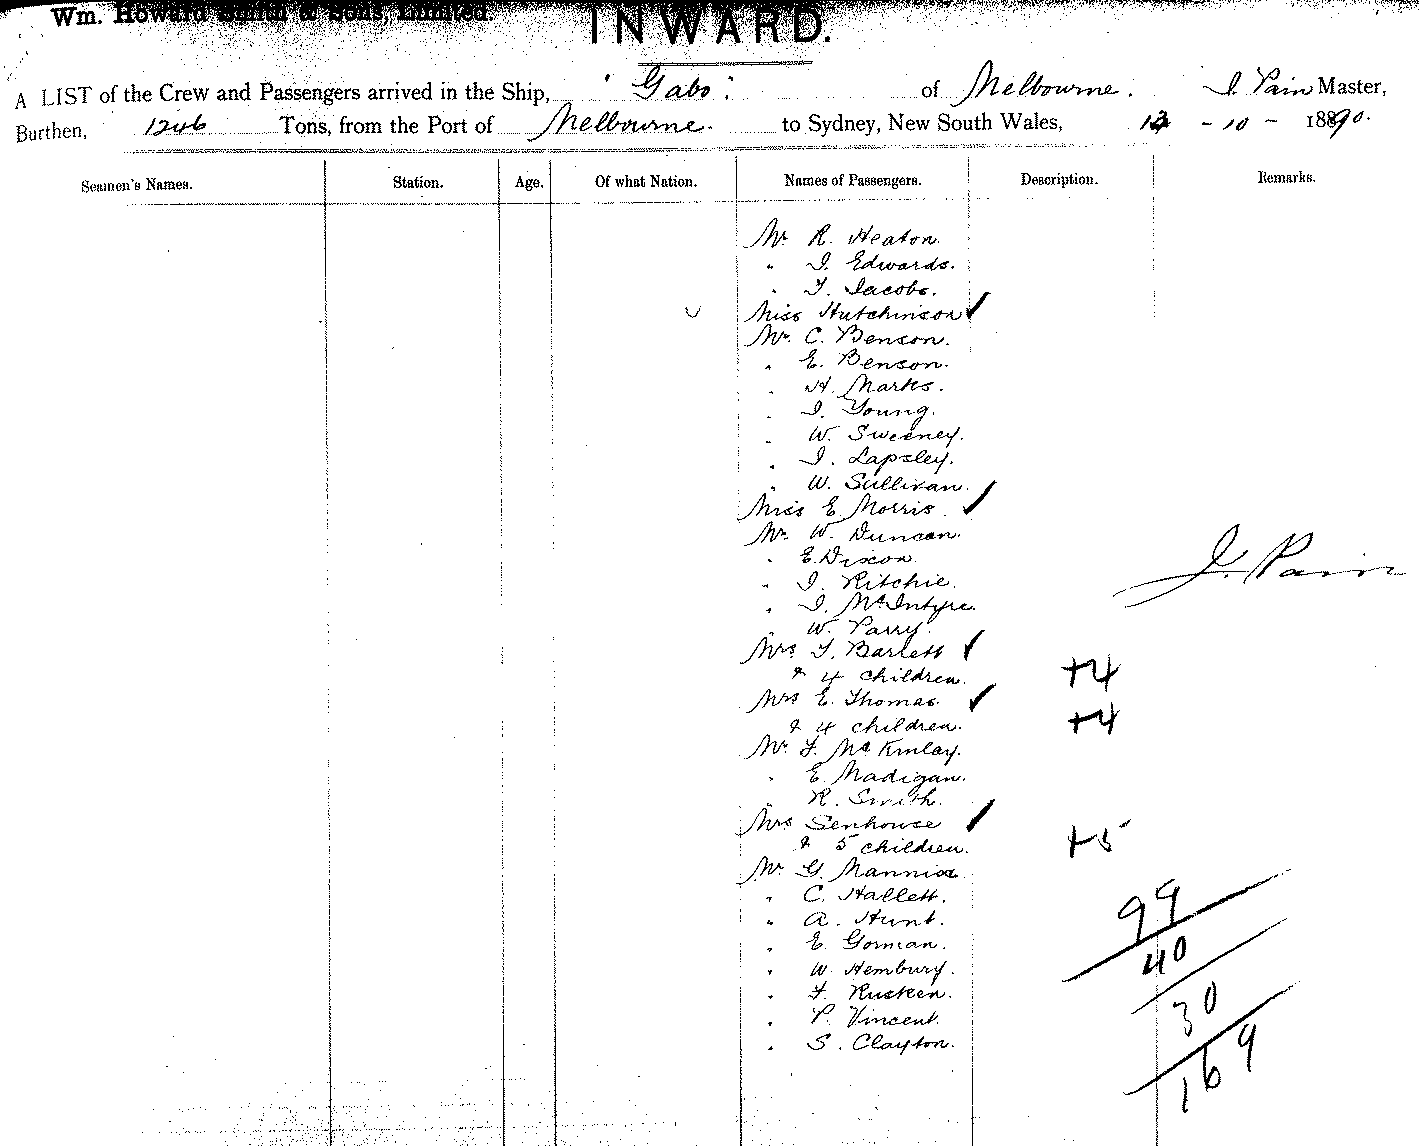 Wm. Howard Smith & Sons, Limited.
INWARD.
A LIST of the Crew and Passengers arrived in the Ship, "Gabo" of Melbourne. J. Pain Master,
Burthen, 1246 Tons, from the Port of Melbourne. to Sydney, New South Wales, - 10 - 1890.
Seamen's Names. Station. Age. Of what Nation. Names of Passengers. Description. Remarks.
Mr R. Heaton.
" J. Edwards.
" F. Jacobs.
Miss Hutchinson ✓
Mr. C. Benson.
" E. Benson.
" H. Marks.
" J. Young.
" W. Sweeney.
" J. Lapsley.
" W. Sullivan.
Miss E. Morris ✓
Mr. W. Duncan.
" E. Dixon.
" J. Ritchie.
J. Pain
" J. McIntyre.
" W. Parry.
Mrs F. Barlett ✓
& 4 children. +4
Mrs E. Thomas. ✓
& 4 children. +4
Mr. F. McKinlay.
" E. Madigan.
" R. Smith.
Mrs Senhouse ✓
& 5 children. +5
Mr. G. Mannix.
" C. Hallett.
99
" A. Hunt.
" E. Gorman.
40
" W. Hembury.
" F. Rusken.
30
" P. Vincent.
" S. Clayton.
169